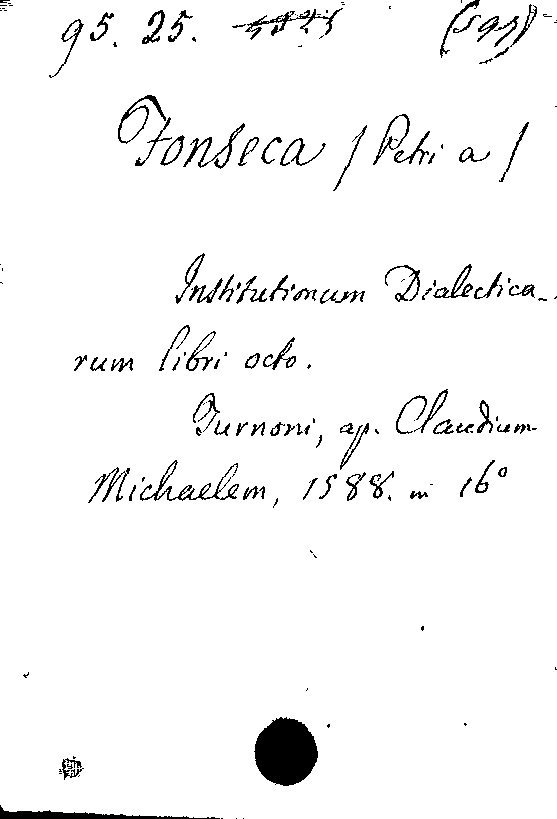 95. 25.
Fonseca / Petri a /
Institutionum Dialectica-
rum libri octo.
Turnoni, ap. Claudium
Michaelem, 1588. in 16°